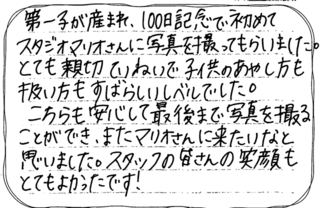 第一子が産まれ、100日記念で初めて
スタジオマリオさんに写真を撮ってもらいました。
とても親切ていねいで子供のあやし方も
扱い方もすばらしいレベルでした。
こちらも安心して最後まで写真を撮る
ことができ、またマリオさんに来たいなと
思いました。スタッフの皆さんの笑顔も
とてもよかったです!